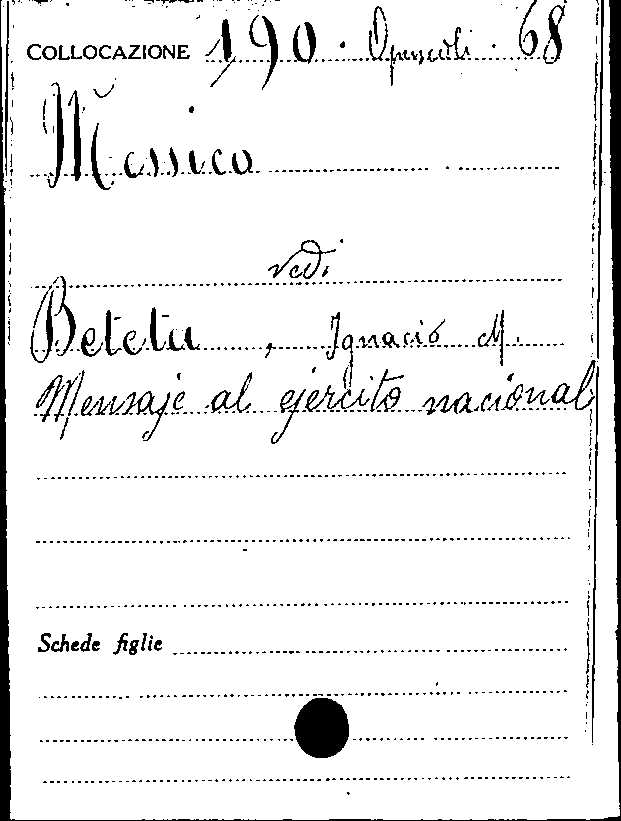 COLLOCAZIONE 190 · Opuscoli · 68
Messico
vedi
Beteta, Ignacio M.
Mensaje al ejército nacional
Schede figlie